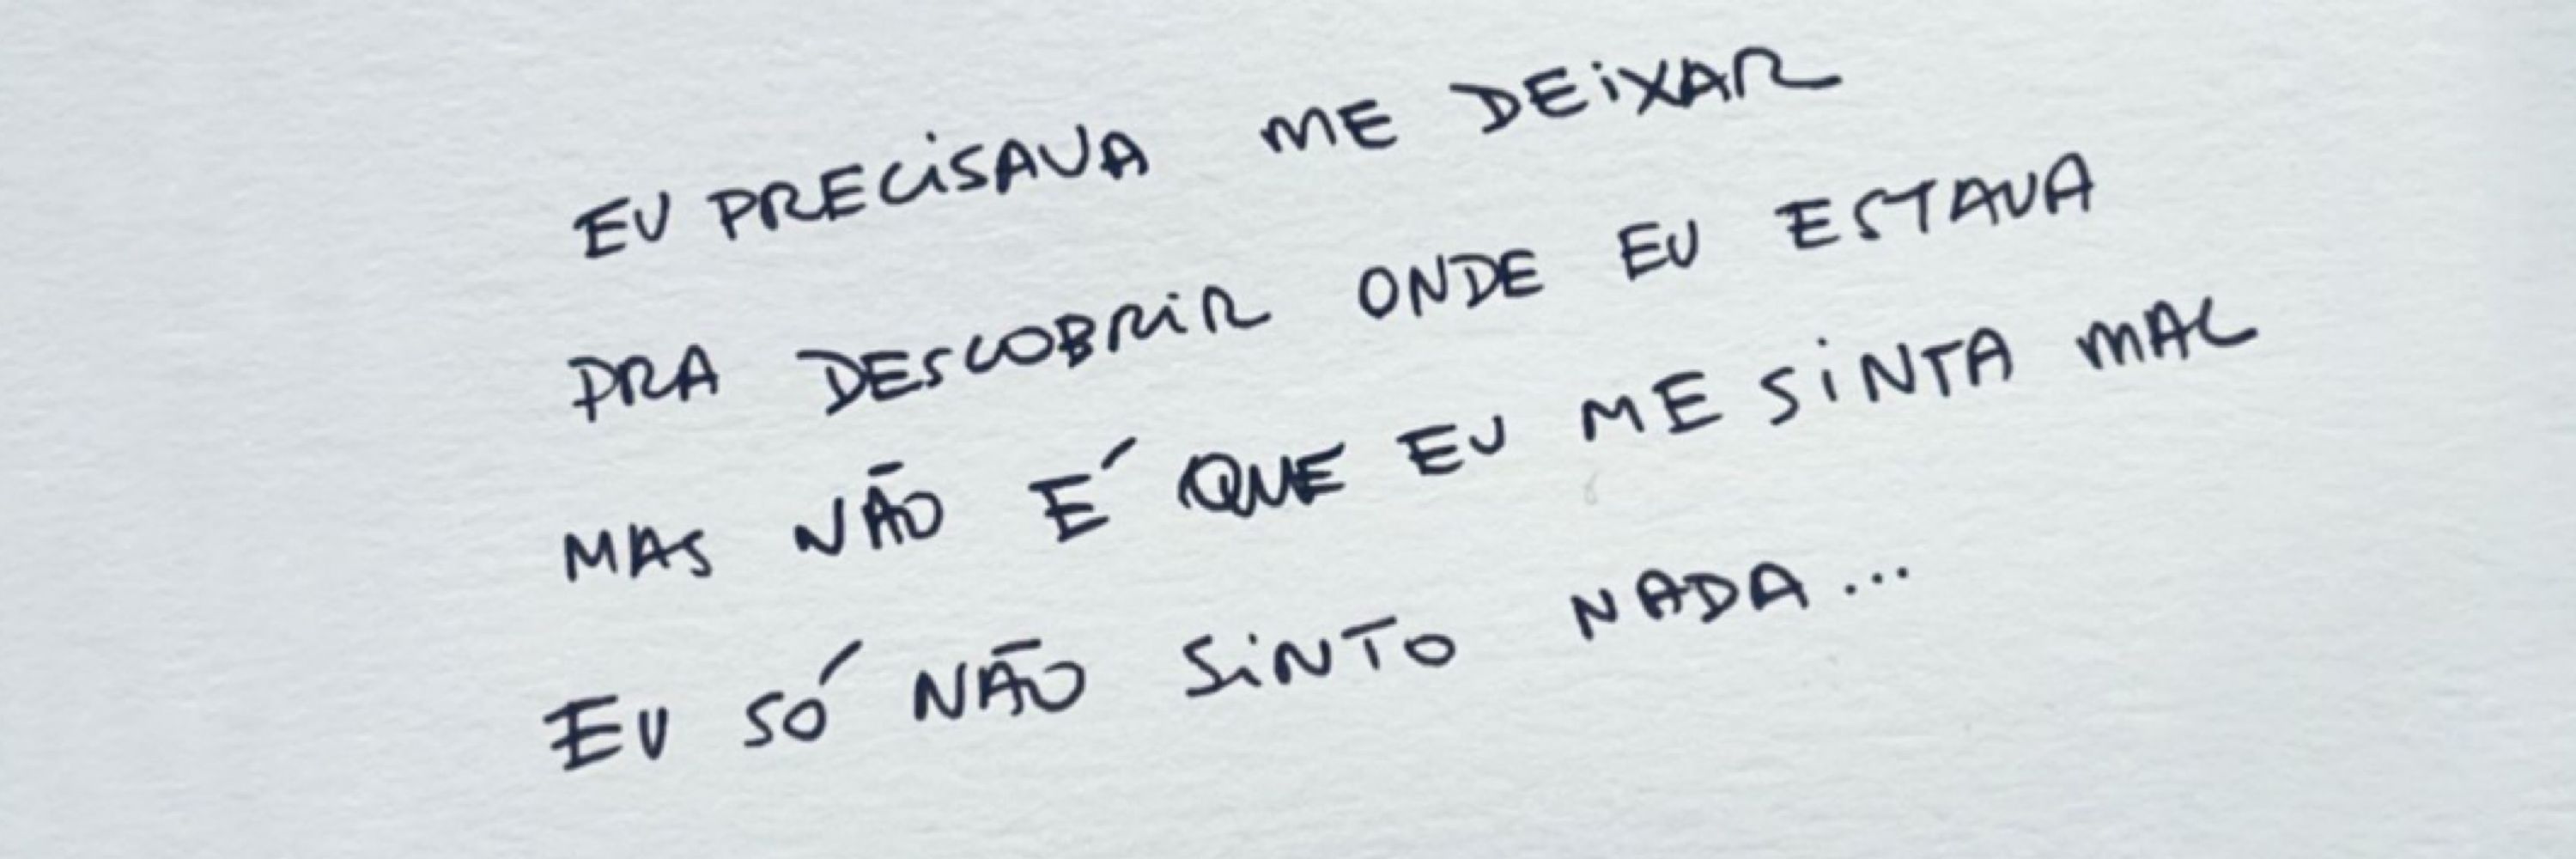 EU PRECISAVA ME DEIXAR
PRA DESCOBRIR ONDE EU ESTAVA
MAS NÃO É QUE EU ME SINTA MAL
EU SÓ NÃO SINTO NADA...